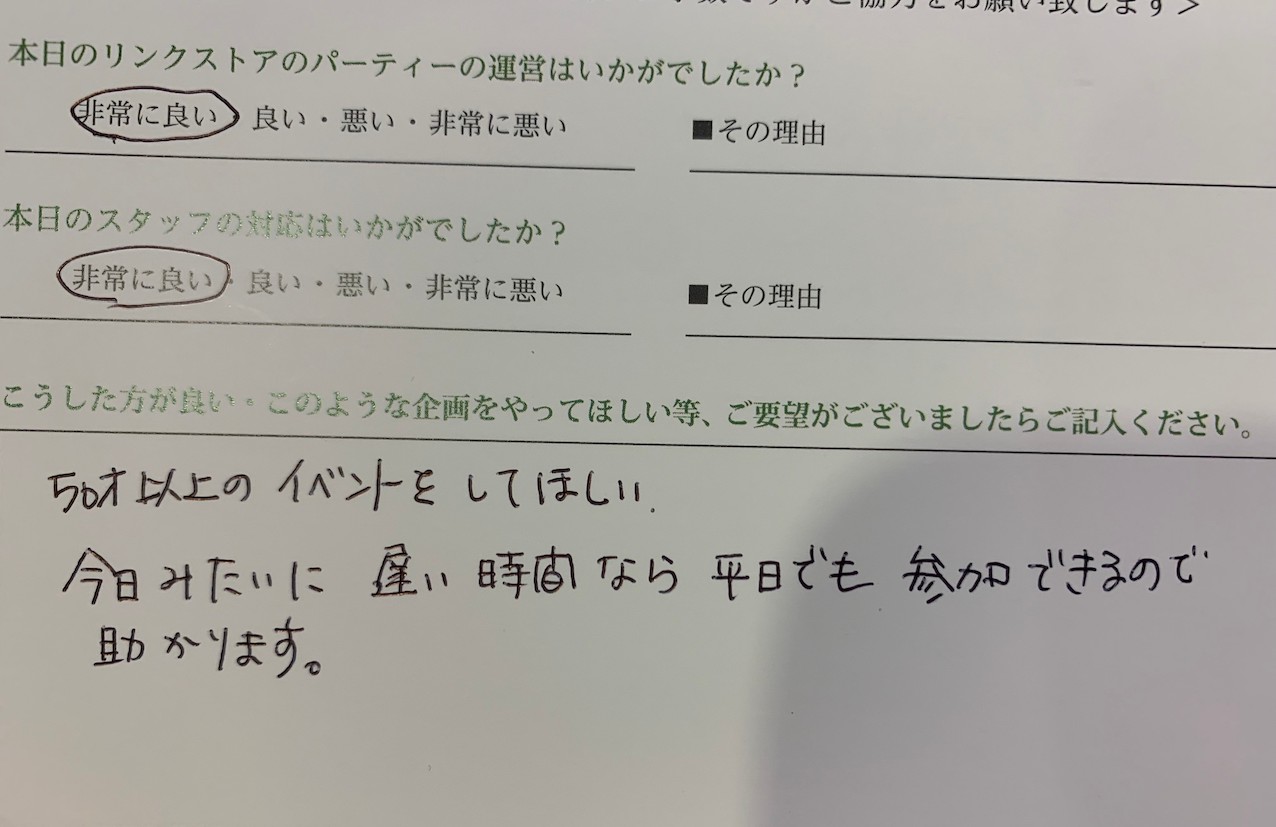 ご協力をお願い致します＞
本日のリンクストアのパーティーの運営はいかがでしたか？
非常に良い 良い・悪い・非常に悪い
■その理由
本日のスタッフの対応はいかがでしたか？
非常に良い・良い・悪い・非常に悪い
■その理由
こうした方が良い・このような企画をやってほしい等、ご要望がございましたらご記入ください。
50才以上のイベントをしてほしい.
今日みたいに遅い時間なら平日でも参加できるので
助かります。